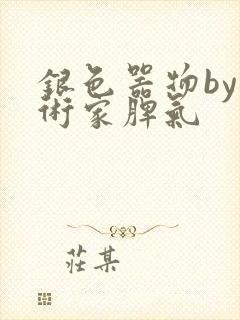 銀色器物by
術家脾氣
莊某